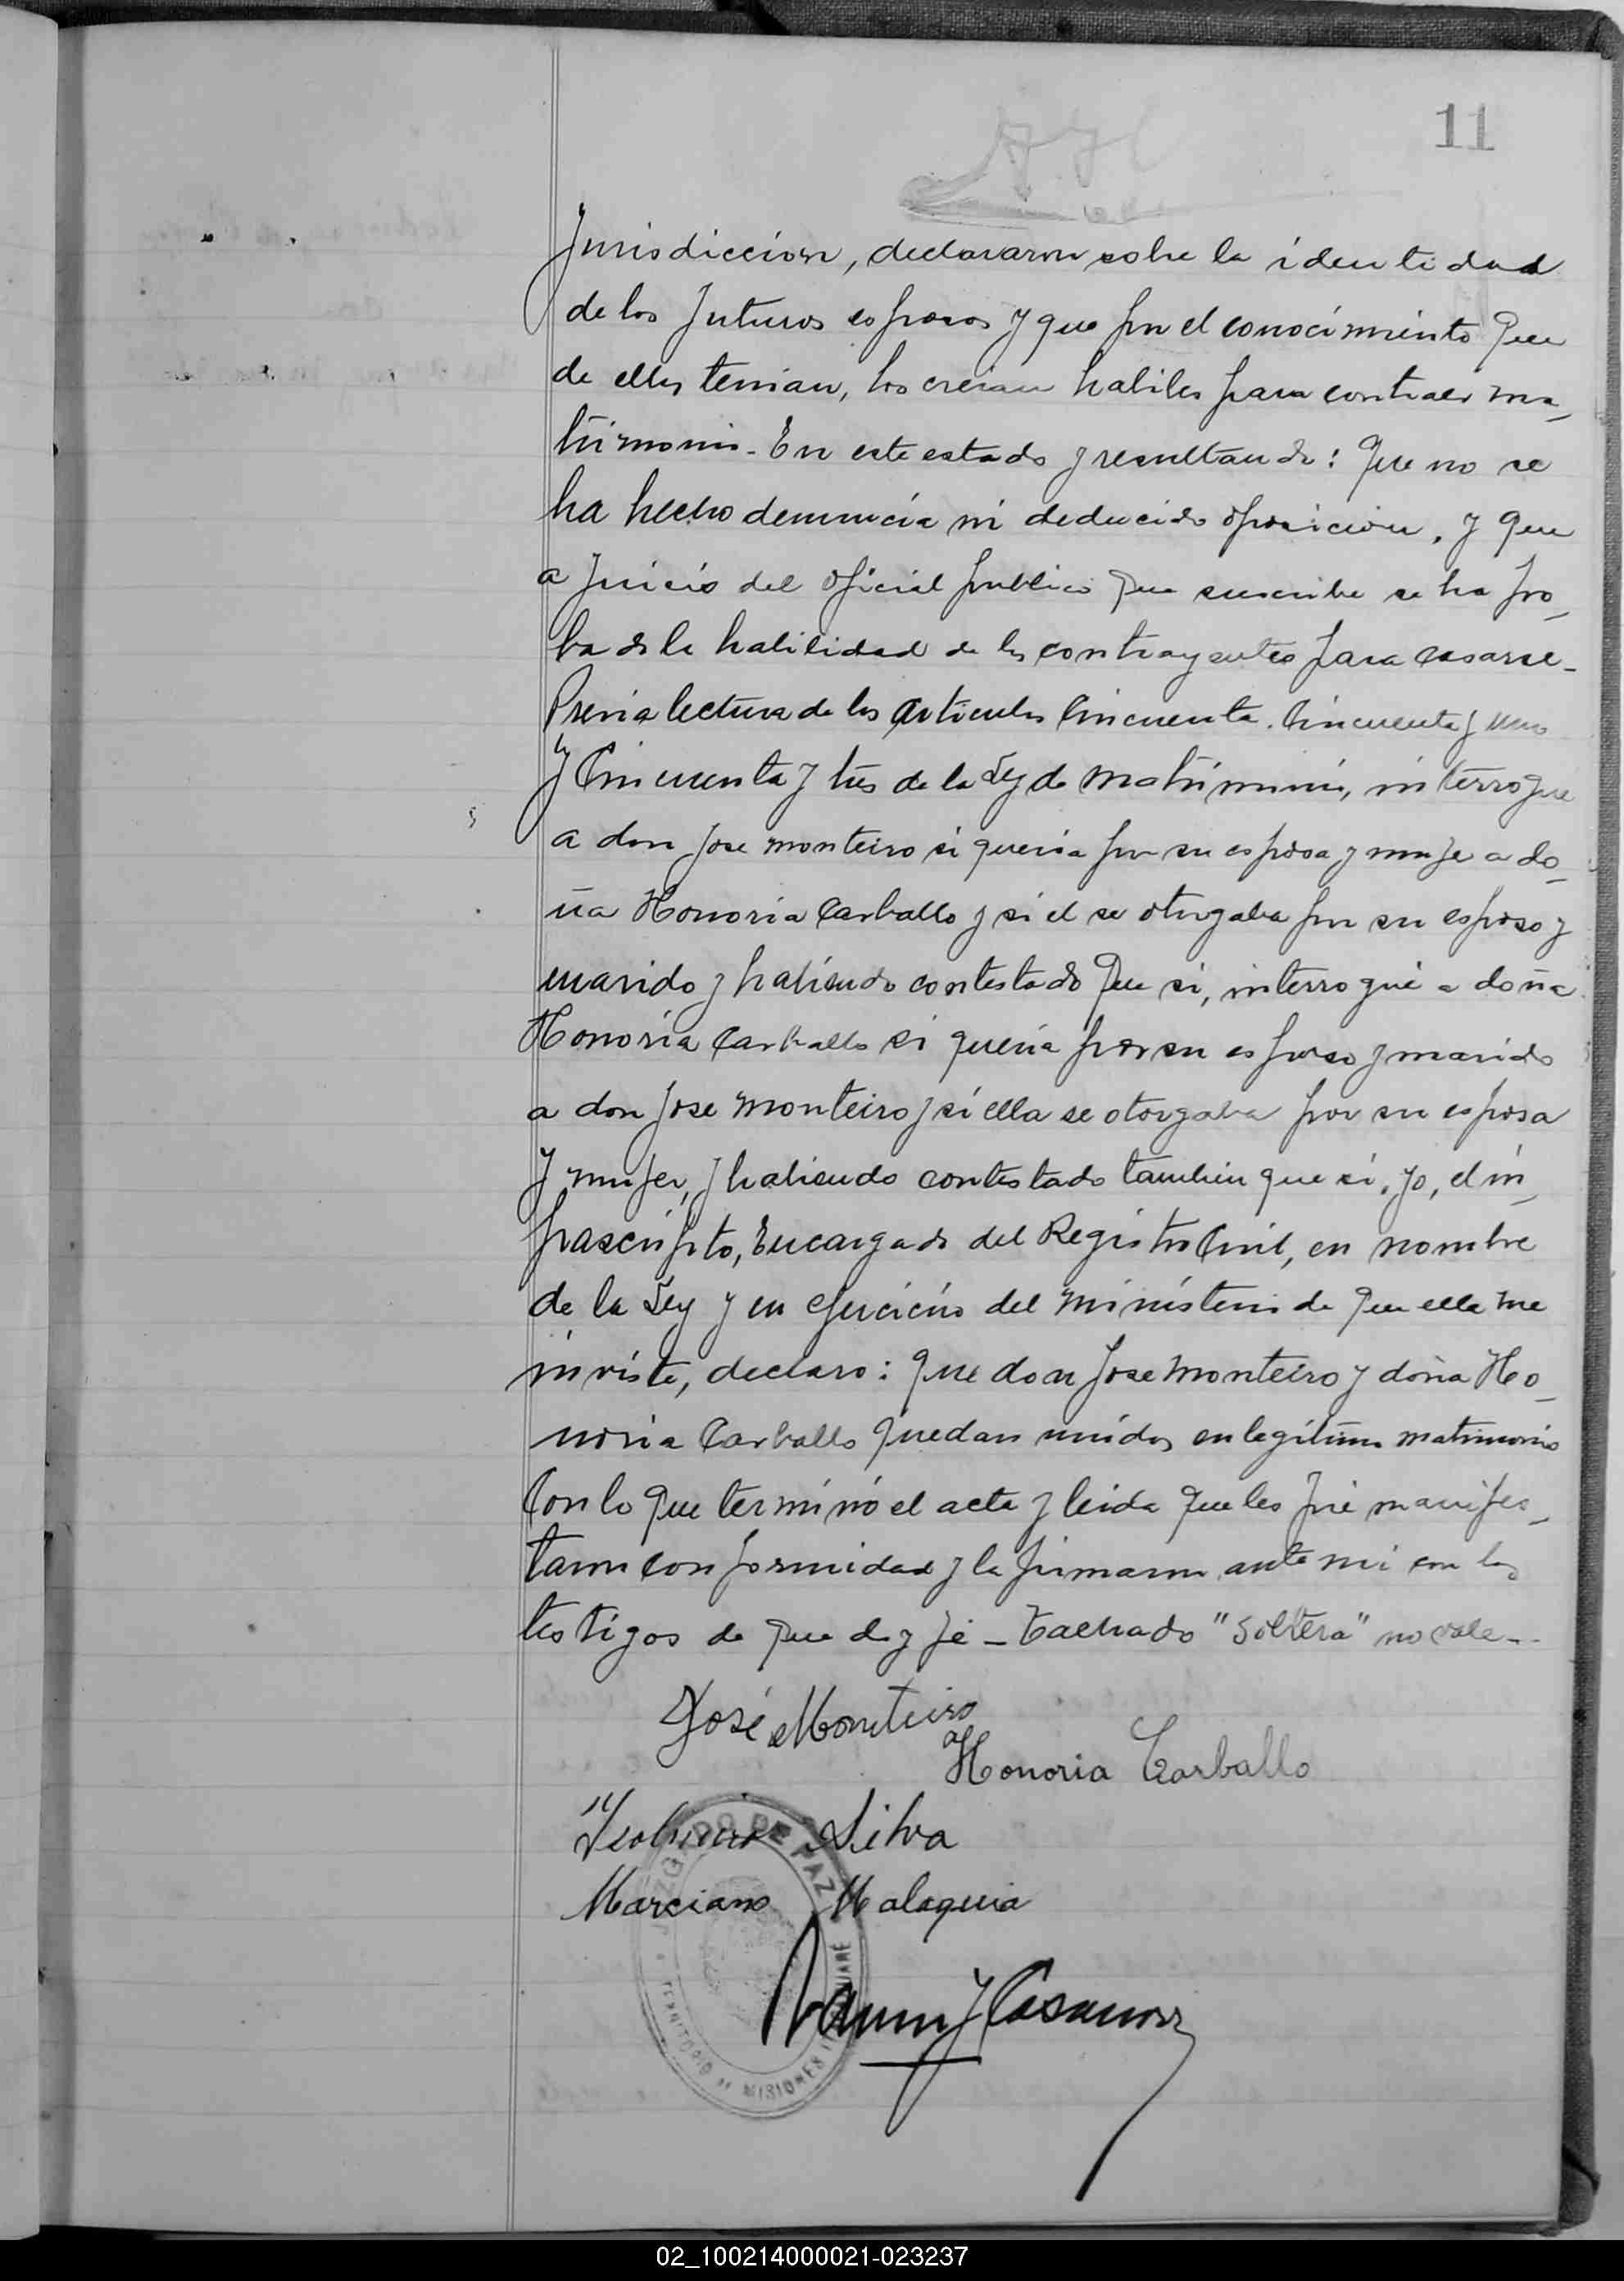 11
Jurisdiccion, declararon sobre la identidad
de los futuros esposos y que por el conocimiento que
de ellos tenian, los creian habiles para contraer ma_
trimonio. En este estado y resultando: Que no se
ha hecho denuncia ni deducido oposicion, y que
a juicio del oficial publico que suscribe se ha pro_
bado la habilidad de los contrayentes para casarse_
Previa lectura de los articulos Cincuenta, Cincuenta y uno
y Cincuenta y tres de la Ley de matrimonio, interrogue
a don Jose Monteiro si queria por su esposa y mujer a do_
ña Honoria Carballo y si el se otorgaba por su esposo y
marido y habiendo contestado que si, interrogué a doña
Honoria Carballo si queria por su esposo y marido
a don Jose Monteiro y si ella se otorgaba por su esposa
y mujer, y habiendo contestado tambien que si, yo, el in_
frascripto, Encargado del Registro Civil, en nombre
de la Ley y en ejercicio del ministerio de que ella me
inviste, declaro: Que don Jose Monteiro y doña Ho_
noria Carballo quedan unidos en legitimo matrimonio
Con lo que terminó el acta y leida que les fué manifes_
taron conformidad y la firmaron ante mi con los
testigos de que doy fé _ Tachado "Soltera" no vale_..
José Monteiro
Honoria Carballo
Silva
Marciano Malaquia
Casanova
JUZGADO DE PAZ
TERRITORIO DE MISIONES
02_100214000021-023237